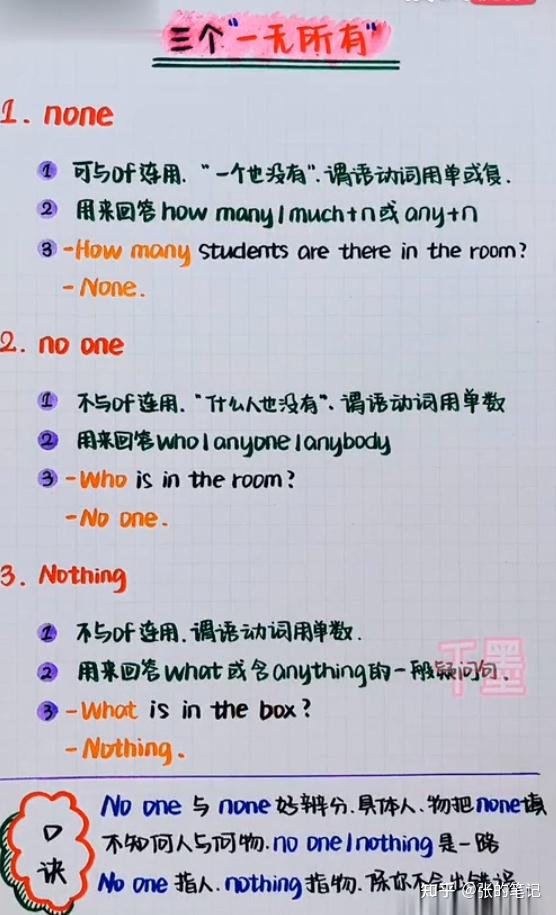 三个"一无所有"
1. none
① 可与of连用."一个也没有".谓语动词用单或复.
② 用来回答how many/much+n或any+n
③ -How many students are there in the room?
- None.
2. no one
① 不与of连用."什么人也没有".谓语动词用单数
② 用来回答who/anyone/anybody
③ -Who is in the room?
-No one.
3. Nothing
① 不与of连用.谓语动词用单数.
② 用来回答what或含anything的一般疑问句.
③ -What is in the box?
-Nothing.
口诀
No one 与 none 好辨分.具体人.物把none填
不知何人与何物.no one/nothing 是一路
No one 指人.nothing指物.
知乎 @张的笔记